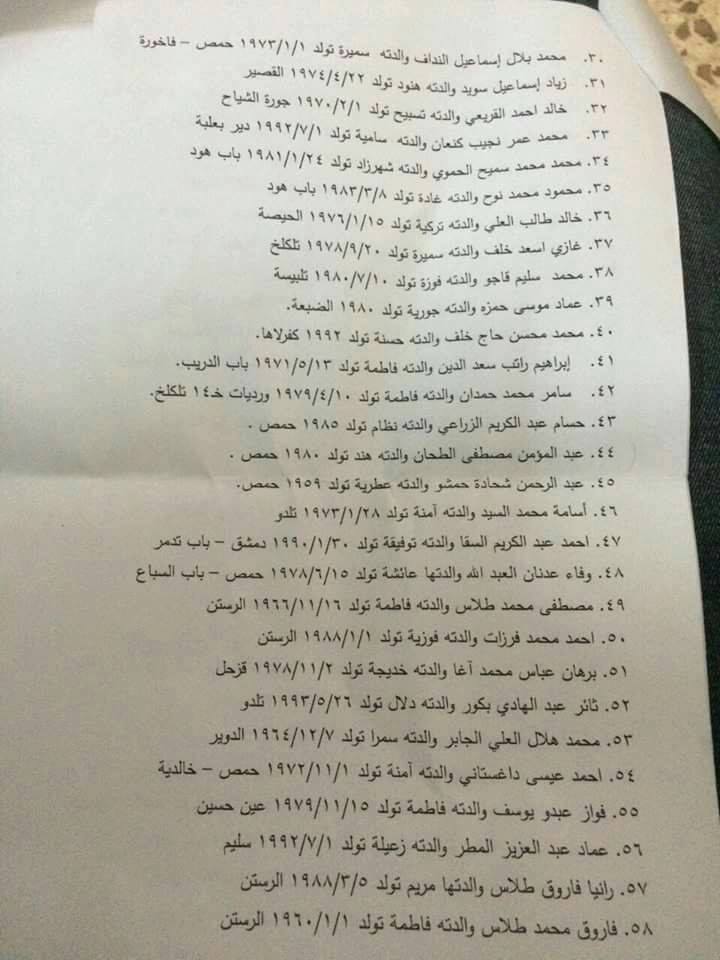 ٣٠. محمد بلال إسماعيل النداف والدته سميرة تولد ١٩٧٣/١/١ حمص – فاخورة
٣١. زياد إسماعيل سويد والدته هنود تولد ١٩٧٤/٤/٢٢ القصير
٣٢. خالد احمد القريعي والدته تسبيح تولد ١٩٧٠/٢/١ جورة الشياح
٣٣. محمد عمر نجيب كنعان والدته سامية تولد ١٩٩٢/٧/١ دير بعلبة
٣٤. محمد محمد سميح الحموي والدته شهرزاد تولد ١٩٨١/١/٢٤ باب هود
٣٥. محمود محمد نوح والدته غادة تولد ١٩٨٣/٣/٨ باب هود
٣٦. خالد طالب العلي والدته تركية تولد ١٩٧٦/١/١٥ الحيصة
٣٧. غازي اسعد خلف والدته سميرة تولد ١٩٧٨/٩/٢٠ تلكلخ
٣٨. محمد سليم قاجو والدته فوزة تولد ١٩٨٠/٧/١٠ تلبيسة
٣٩. عماد موسى حمزه والدته جورية تولد ١٩٨٠ الضبعة.
٤٠. محمد محسن حاج خلف والدته حسنة تولد ١٩٩٢ كفرلاها.
٤١. إبراهيم راتب سعد الدين والدته فاطمة تولد ١٩٧١/٥/١٣ باب الدريب.
٤٢. سامر محمد حمدان والدته فاطمة تولد ١٩٧٩/٤/١٠ ورديات خـ١٤ تلكلخ.
٤٣. حسام عبد الكريم الزراعي والدته نظام تولد ١٩٨٥ حمص .
٤٤. عبد المؤمن مصطفى الطحان والدته هند تولد ١٩٨٠ حمص .
٤٥. عبد الرحمن شحادة حمشو والدته عطرية تولد ١٩٥٩ حمص.
٤٦. أسامة محمد السيد والدته آمنة تولد ١٩٧٣/١/٢٨ تلدو
٤٧. احمد عبد الكريم السقا والدته توفيقة تولد ١٩٩٠/١/٣٠ دمشق – باب تدمر
٤٨. وفاء عدنان العبد الله والدتها عائشة تولد ١٩٧٨/٦/١٥ حمص – باب السباع
٤٩. مصطفى محمد طلاس والدته فاطمة تولد ١٩٦٦/١١/١٦ الرستن
٥٠. احمد محمد فرزات والدته فوزية تولد ١٩٨٨/١/١ الرستن
٥١. برهان عباس محمد آغا والدته خديجة تولد ١٩٧٨/١١/٢ قزحل
٥٢. ثائر عبد الهادي بكور والدته دلال تولد ١٩٩٣/٥/٢٦ تلدو
٥٣. محمد هلال العلي الجابر والدته سمرا تولد ١٩٦٤/١٢/٧ الدوير
٥٤. احمد عيسى داغستاني والدته آمنة تولد ١٩٧٢/١١/١ حمص – خالدية
٥٥. فواز عبدو يوسف والدته فاطمة تولد ١٩٧٩/١١/١٥ عين حسين
٥٦. عماد عبد العزيز المطر والدته زعيلة تولد ١٩٩٢/٧/١ سليم
٥٧. رانيا فاروق طلاس والدتها مريم تولد ١٩٨٨/٣/٥ الرستن
٥٨. فاروق محمد طلاس والدته فاطمة تولد ١٩٦٠/١/١ الرستن